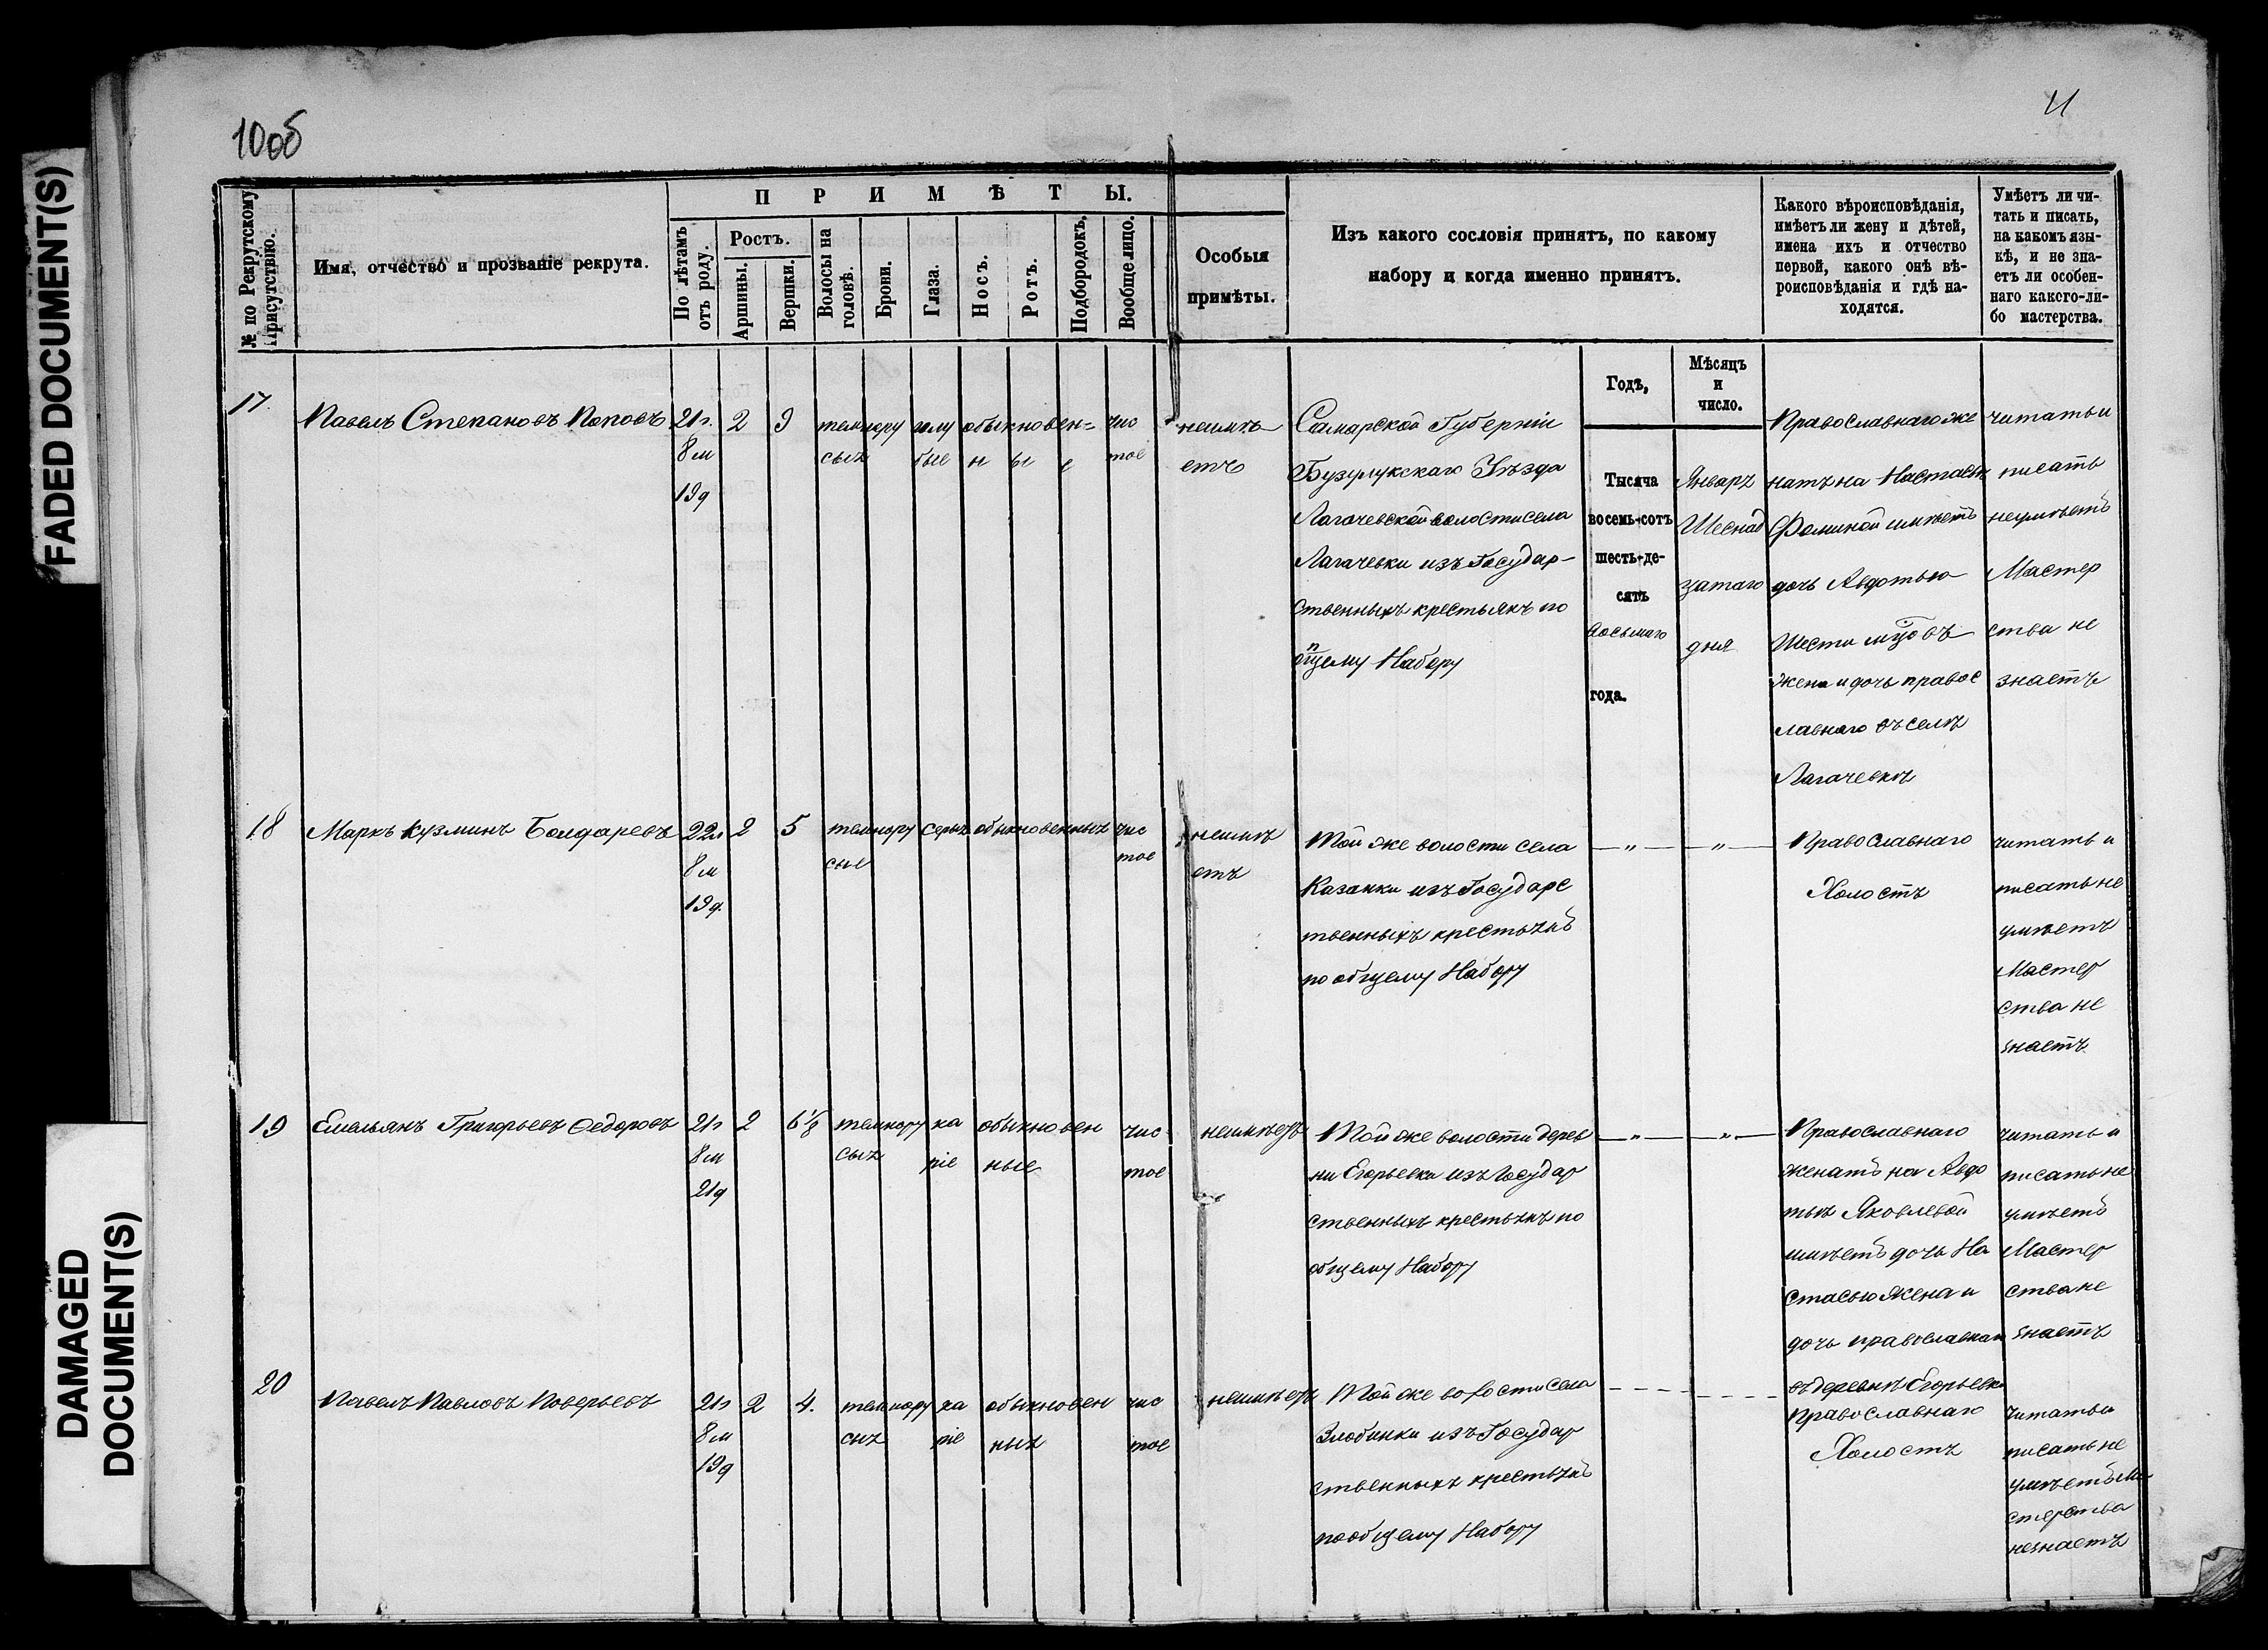 FADED DOCUMENT(S)
DAMAGED
DOCUMENT(S)
10об
11
№ по Рекрутскому
Присутствію.
Имя, отчество и прозваніе рекрута.
ПРИМѢТЫ.
По лѣтамъ
отъ роду.
Ростъ.
Аршины.
Вершки.
Волосы на
головѣ.
Брови.
Глаза.
Носъ.
Ротъ.
Подбородокъ.
Вообще лицо.
Особыя
примѣты.
Изъ какого сословія принятъ, по какому
набору и когда именно принятъ.
Какого вѣроисповѣданія,
имѣетъ ли жену и дѣтей,
имена ихъ и отчество
первой, какого онѣ вѣ-
роисповѣданія и гдѣ на-
ходятся.
Умѣетъ ли чи-
тать и писать,
на какомъ язы-
кѣ, и не зна-
етъ ли особен-
наго какого-ли-
бо мастерства.
Годъ,
Мѣсяцъ
и
число.
17.
Павелъ Степановъ Поповъ
21г.
8м
19д
2
3
темнору
сыя
голу
бые
обыкновен=
н ы е
чис
тое
неимѣ
етъ
Самарской Губерніи
Бузулукскаго Уѣзда
Лагачевской волости села
Лагачевки изъ Государ-
ственныхъ крестьянъ по
общему Набору
Тысяча
восемь-сотъ
шесть-де-
сятъ
восьмаго
года.
Январь
Шеснад
цатаго
дня
Православнаго же
натъ на Настасьѣ
Фоминой имѣетъ
дочь Авдотью
Шести мцовъ
жена и дочь правос
лавнаго въ селѣ
Лагачевкѣ
читать и
писать
неумѣетъ
Мастер
ства не
знаетъ
18
Маркъ Кузминъ Болдаревъ
22г
8м
19д
2
5
темнору
сые
серые
обыкновенныя
чис
тое
неимѣ
етъ
Той же волости села
Казанки изъ Государс
твенныхъ крестьянъ
по общему Набору
— „ — — „ —
Православнаго
Холостъ
читать и
писать не
умѣетъ
Мастер
ства не
знаетъ
19
Емельянъ Григорьевъ Ѳедоровъ
21г
8м
21д
2
6 1/8
темнору
сыя
ка
ріе
обыкновен
ные
чис
тое
неимѣетъ
Той же волости дерев
ни Егорьевки изъ Государ
ственныхъ крестьянъ по
общему Набору
— „ — — „ —
Православнаго
женатъ на Авдо
тьѣ Яковлевой
имѣетъ дочь На
стасью жена и
дочь православная
въ деревнѣ Егорьевки
читать и
писать не
умѣетъ
Мастер
ства не
знаетъ
20
Павелъ Павловъ Поверьевъ
21г
8м
19д
2
4.
темнору
сыя
ка
ріе
обыкновен
ныя
чис
тое
неимѣетъ
Той же волости села
Злобинки изъ Государ
ственныхъ крестьянъ
по общему Набору
Православнаго
Холостъ
читать и
писать не
умѣетъ Ма
стерства
незнаетъ